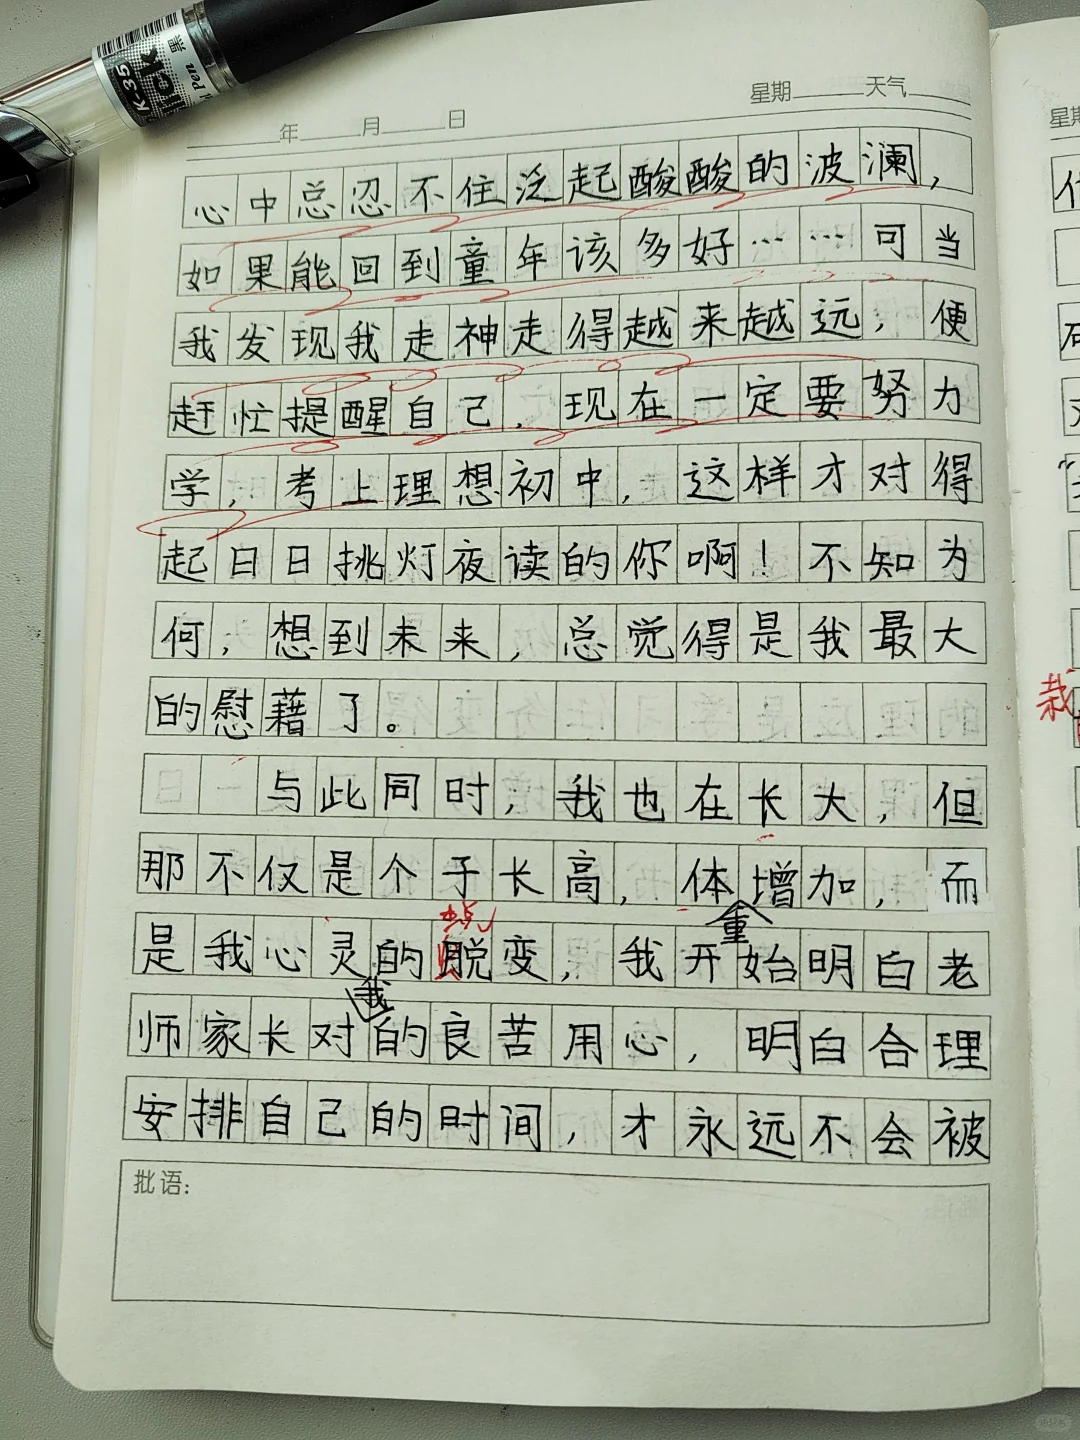 K-35
黑
年 月 日 星期 天气
心中总忍不住泛起酸酸的波澜，
如果能回到童年该多好……可当
我发现我走神走得越来越远，便
赶忙提醒自己，现在一定要努力
学，考上理想初中，这样才对得
起日日挑灯夜读的你啊！不知为
何，想到未来，总觉得是我最大
的慰藉了。
与此同时，我也在长大，但
那不仅是个子长高，体重增加，而
是我心灵的脱变，我开始明白老
蜕
师家长对我的良苦用心，明白合理
安排自己的时间，才永远不会被
批语：
星期
栽